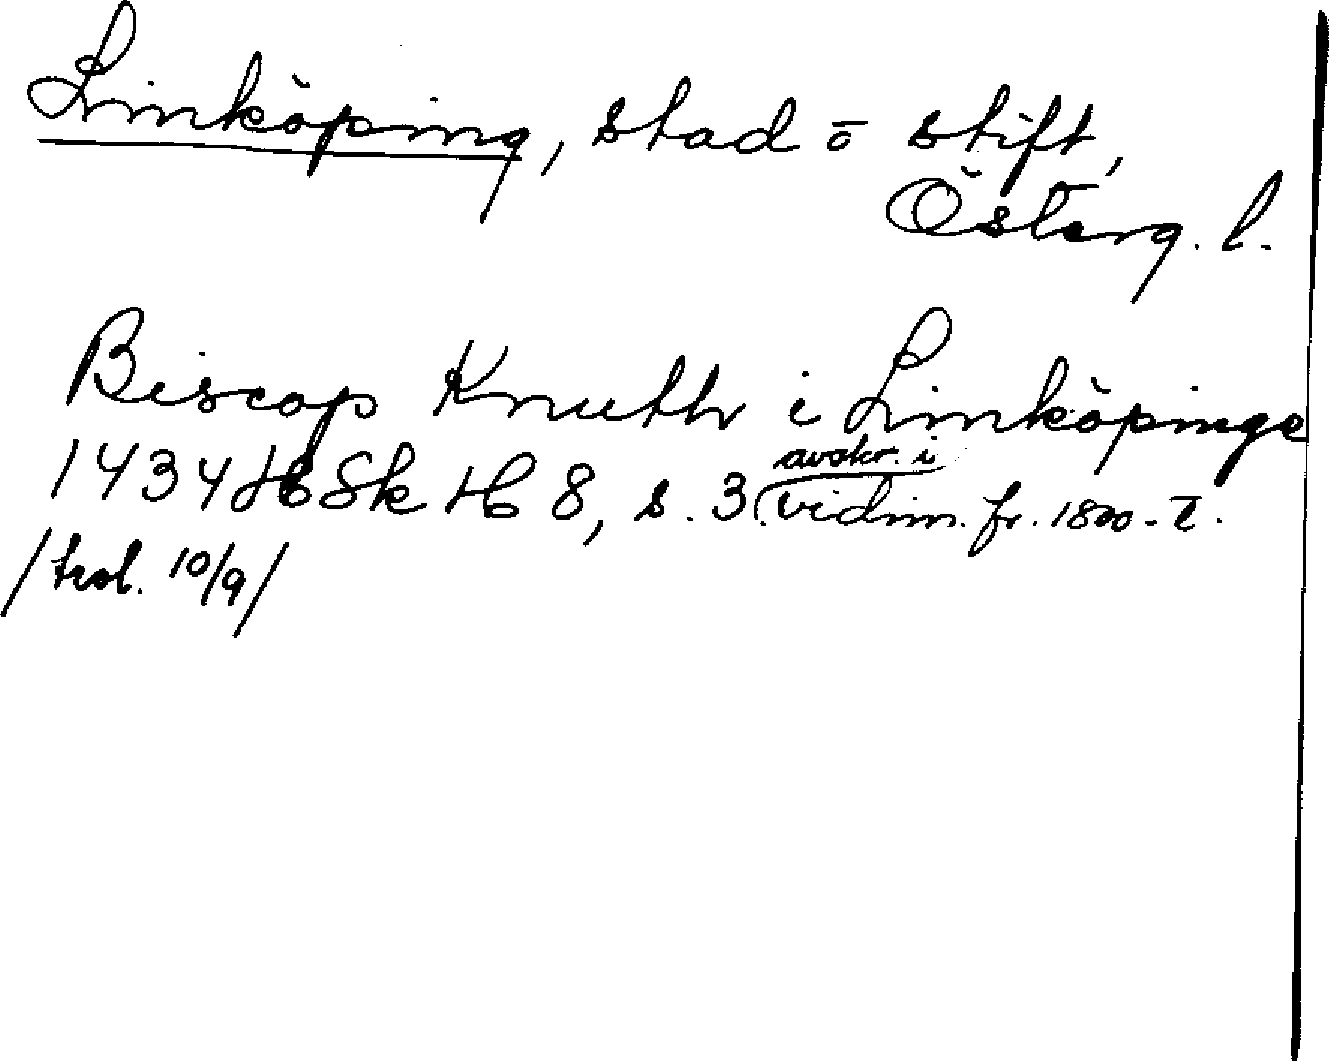 Linköping, stad o stift,
Österg. l.
Biscop Knuth i Linköpinge
1434 HSk H 8, s. 3 (avskr. i
vidim. fr. 1800-t.
/trol. 10/9/